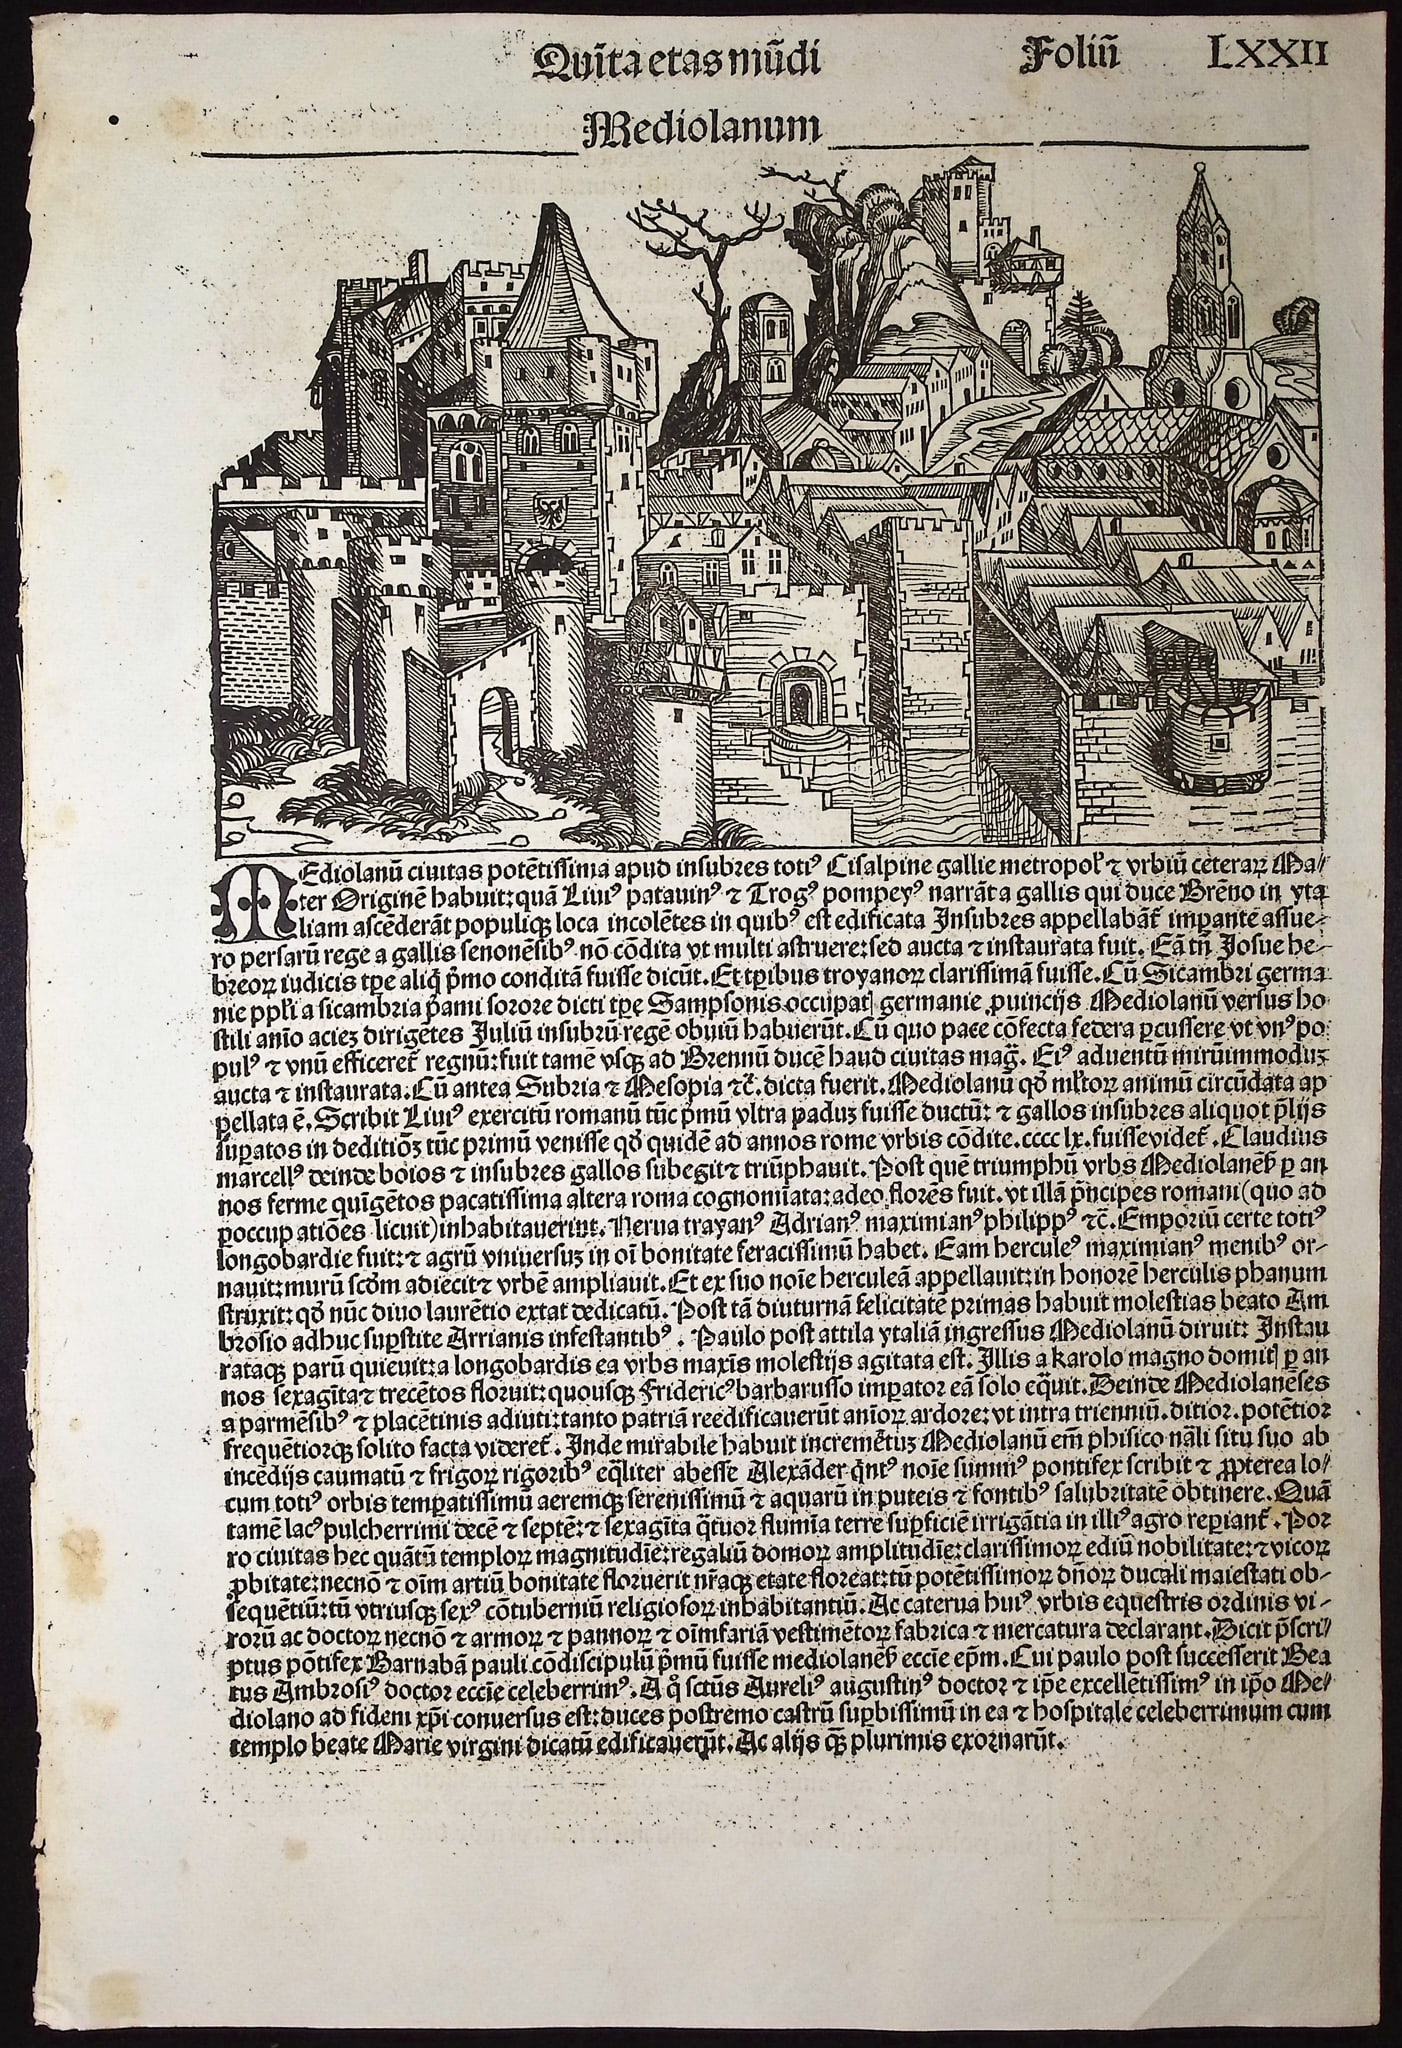 Quīta etas mūdi Foliū LXXII
Mediolanum
MEdiolanū ciuitas potētissima apud insubres totiꝰ Cisalpine gallie metropolꝭ ⁊ vrbiū ceteraꝝ Ma⸗
ter Originē habuit: quā Liuiꝰ patauinꝰ ⁊ Trogꝰ pompeyꝰ narrāt a gallis qui duce Brēno in yta
liam ascēderāt populiqꝫ loca incolētes in quibꝰ est edificata Insubres appellabāt̄ impante assue⸗
ro persarū rege a gallis senonēsibꝰ nō cōdita vt multi astruere: sed aucta ⁊ instaurata fuit. Eā tn̄ Josue he⸗
breoꝝ iudicis tꝑe aliq̄ p̄mo conditā fuisse dicūt. Et tꝑibus troyanoꝝ clarissimā fuisse. Cū Sicambri germa
nie ppl̓i a sicambria p̄ami sorore dicti tꝑe Sampsonis occupatꝭ germanie ꝓuincijs Mediolanū versus ho
stili anīo aciez dirigētes Juliū insubrū regē obuiū habuerūt. Cū quo pace cōfecta federa ꝑcussere vt vnꝰ po
pulꝰ ⁊ vnū efficeret̄ regnū: fuit tamē vsqꝫ ad Brennū ducē haud ciuitas maḡ. Eiꝰ aduentū mirūimmoduꝫ
aucta ⁊ instaurata: Cū antea Subria ⁊ Mesopia ⁊c̄. dicta fuerit. Mediolanū qd̓ ml̓toꝝ animū circūdata ap
pellata ē. Scribit Liuiꝰ exercitū romanū tūc p̄mū vltra paduꝫ fuisse ductū: ⁊ gallos insubres aliquot p̄lijs
suꝑatos in deditiōꝫ tūc primū venisse qd̓ quidē ad annos rome vrbis cōdite. cccc lx. fuisse videt̄. Claudius
marcellꝰ deinde boios ⁊ insubres gallos subegit ⁊ triūphauit. Post quē triumphū vrbs Mediolanēẜ ꝑ an
nos ferme quīgētos pacatissima altera roma cognomīata: adeo florēs fuit. vt illā p̄ncipes romani (quo ad
ꝑ occupatiōes licuit) inhabitauerint. Nerua trayanꝰ Adrianꝰ maximianꝰ philippꝰ ⁊c̄. Emporiū certe totiꝰ
longobardie fuit: ⁊ agrū vniuersuꝫ in oī bonitate feracissimū habet. Eam herculeꝰ maximianꝰ menibꝰ or⸗
nauit: murū scd̓m adiecit ⁊ vrbē ampliauit. Et ex suo noīe herculeā appellauit: in honorē herculis phanum
struxit: qd̓ nūc diuo laurētio extat dedicatū. Post tā diuturnā felicitatē primas habuit molestias beato Am
brosio adhuc suꝑstite Arrianis infestantibꝰ. Paulo post attila ytaliā ingressus Mediolanū diruit: Instau
rataqꝫ parū quieuit: a longobardis ea vrbs maxīs molestijs agitata est. Illis a karolo magno domitꝭ ꝑ an
nos sexagīta ⁊ trecētos floruit: quousqꝫ Fridericꝰ barbarusso imꝑator eā solo eq̄uit. Deinde Mediolanēses
a parmēsibꝰ ⁊ placētinis adiuti: tanto patriā reedificauerūt anīoꝝ ardore: vt intra trienniū. ditior. potētior
frequētiorqꝫ solito facta videret̄. Inde mirabile habuit incremētuꝫ Mediolanū em̄ phisico nāli situ suo ab
incēdijs caumatū ⁊ frigoꝝ rigoribꝰ eq̄liter abesse Alexāder q̄ntꝰ noīe summꝰ pontifex scribit ⁊ ꝓpterea lo⸗
cum totiꝰ orbis temꝑatissimū aeremqꝫ serenissimū ⁊ aquarū in puteis ⁊ fontibꝰ salubritatē obtinere. Quā
tamē lacꝰ pulcherrimi decē ⁊ septē: ⁊ sexagīta q̄tuor flumīa terre suꝑficiē irrigātia in illiꝰ agro reꝑiant̄. Por
ro ciuitas hec quātū temploꝝ magnitudīe: regaliū domoꝝ amplitudīe: clarissimoꝝ ediū nobilitate: ⁊ vicoꝝ
ꝓbitate: necnō ⁊ oīm artiū bonitate floruerit nr̄aqꝫ etate floreat: tū potētissimoꝝ dn̄oꝝ ducali maiestati ob⸗
sequētiū: tū vtriusqꝫ sexꝰ cōtuberniū religiosoꝝ inhabitantiū. Ac caterua huiꝰ vrbis equestris ordinis vi⸗
rorū ac doctoꝝ necnō ⁊ armoꝝ ⁊ pannoꝝ ⁊ oīmfariā vestimētoꝝ fabrica ⁊ mercatura declarant. Dicit p̄scri⸗
ptus pōtifex Barnabā pauli cōdiscipulū p̄mū fuisse mediolanēẜ eccīe ep̄m. Cui paulo post successerit Bea
tus Ambrosiꝰ doctor eccīe celeberrimꝰ. A q̊ sctūs Aureliꝰ augustinꝰ doctor ⁊ ip̄e excellētissimꝰ in ip̄o Me⸗
diolano ad fidem xp̄i conuersus est: duces postremo castrū suꝑbissimū in ea ⁊ hospitale celeberrimum cum
templo beate Marie virgini dicatū edificauerūt. Ac alijs qꝫ plurimis exornarūt.